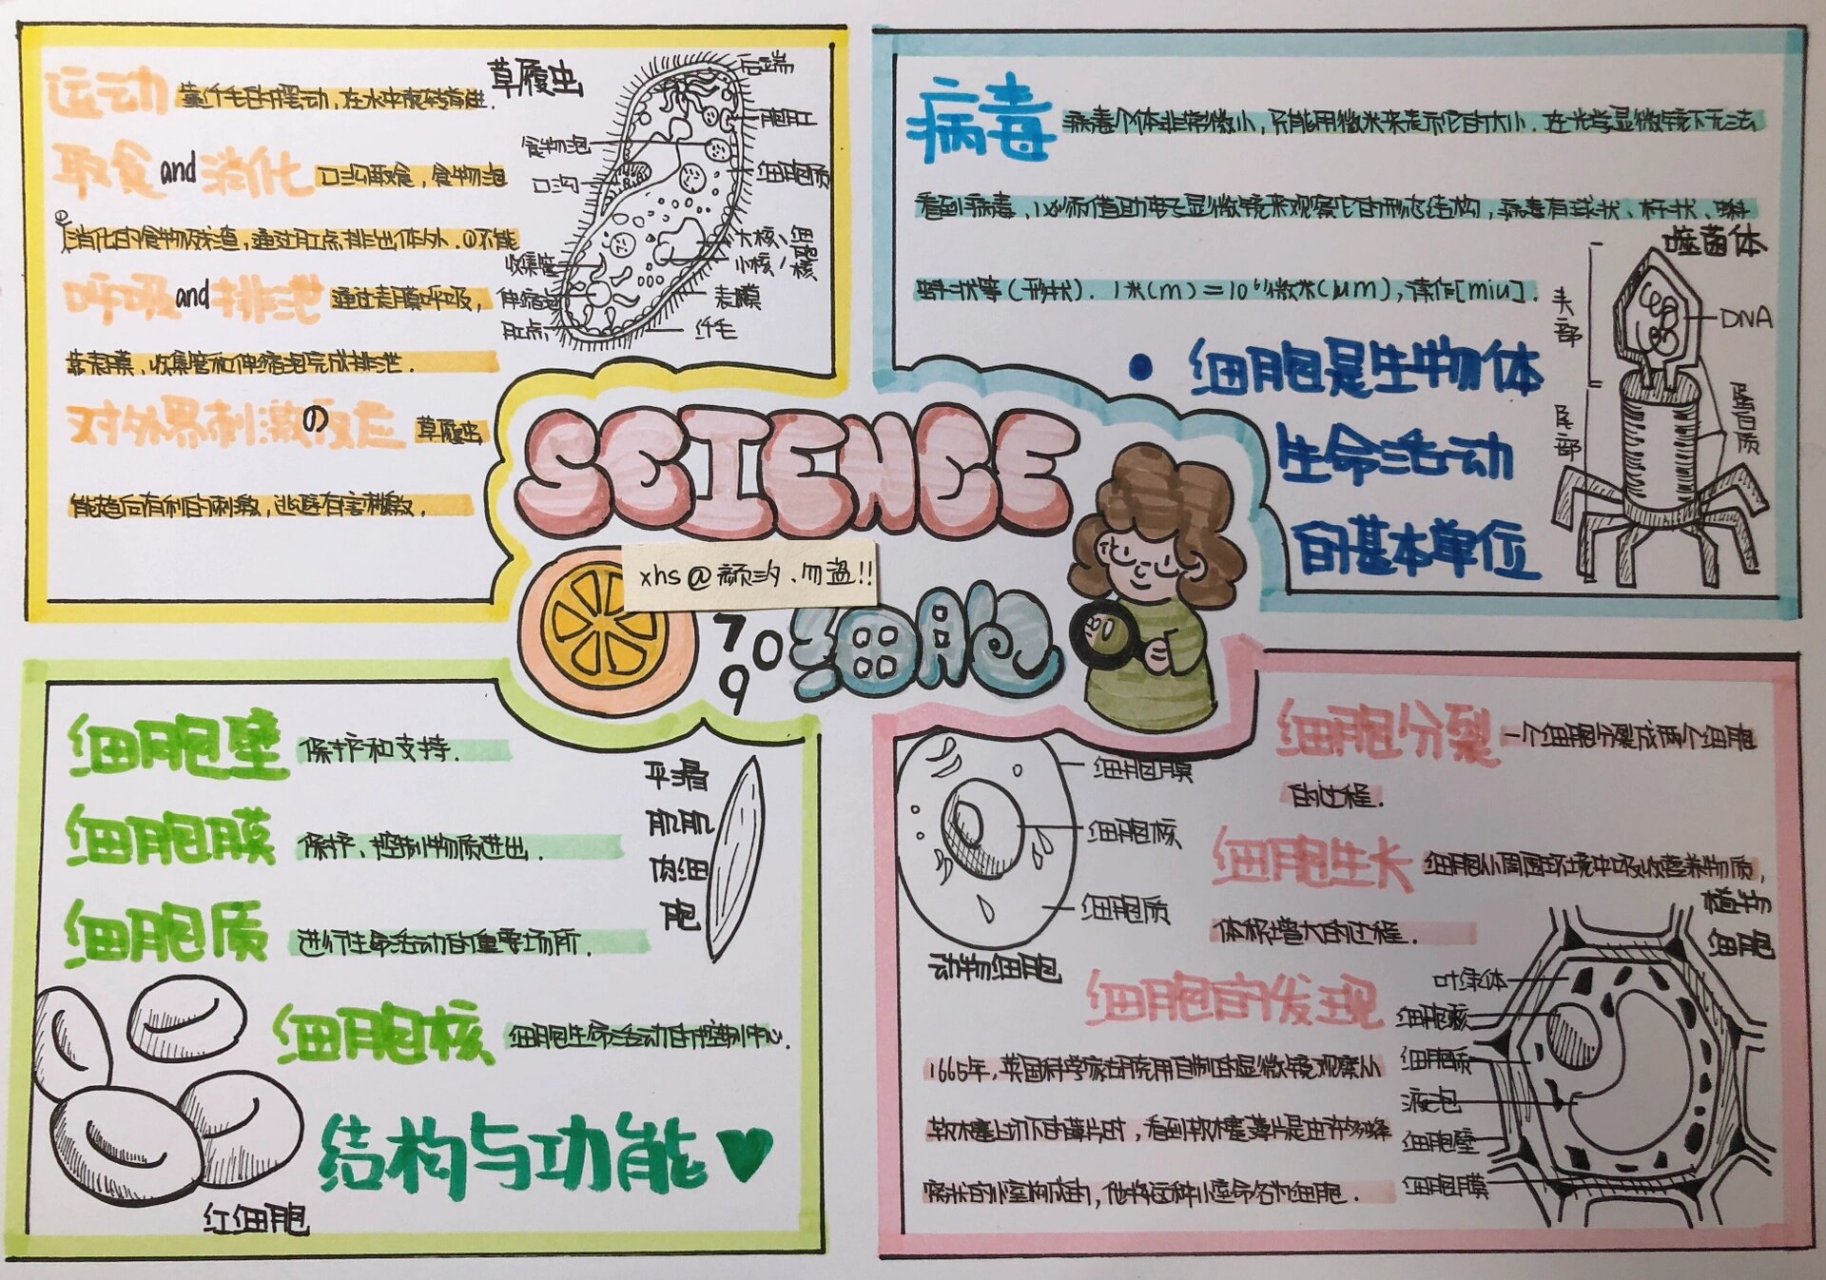 运动 靠纤毛的摆动，在水中旋转前进．
取食and消化 口沟取食，食物泡
①消化的食物残渣，通过肛点排出体外．①不能
呼吸and排泄 通过表膜呼吸，
靠表膜、收集管和伸缩泡完成排泄．
对外界刺激の反应 草履虫
能趋向有利的刺激，逃避有害刺激．
草履虫
后端
胞肛
食物泡
口沟
细胞质
大核
小核
细胞核
收集管
伸缩泡
表膜
肛点
纤毛
病毒 病毒个体非常微小，只能用微米来表示它的大小．在光学显微镜下无法
看到病毒，必须借助电子显微镜来观察它的形态结构，病毒有球状、杆状、蝌
蚪状等（形状）．1米(m)=10⁶微米(μm),读作[miu]．
噬菌体
头部
DNA
尾部
蛋白质
• 细胞是生物体
生命活动
的基本单位
SCIENCE
xhs@颜汐．勿盗!!
709
细胞
细胞壁 保护和支持．
细胞膜 保护、控制物质进出．
细胞质 进行生命活动的重要场所．
细胞核 细胞生命活动的控制中心．
平滑
肌肌
肉细
胞
结构与功能
红细胞
细胞分裂 一个细胞分裂成两个细胞
的过程．
细胞生长 细胞从周围环境中吸收营养物质，
体积增大的过程．
细胞的发现
1665年，英国科学家胡克用自制的显微镜观察从
软木塞上切下的薄片时，看到软木塞薄片是由许多蜂
窝状的小室构成，他将这种小室命名为细胞．
细胞膜
细胞核
细胞质
动物细胞
植物
细胞
叶绿体
细胞核
细胞质
液泡
细胞壁
细胞膜